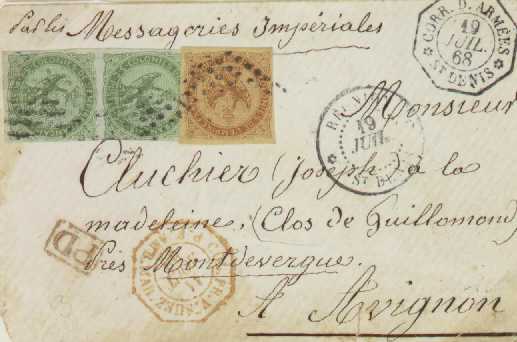 Par les Messageries Impériales
CORR. D. ARMÉES
19
JUIL.
68
ST DENIS
Monsieur
19
JUIL.
ST DENIS
Cluchier (Joseph) à la
madeleine, (Clos de Guillomond)
PD
près Montdevergue.
A Avignon